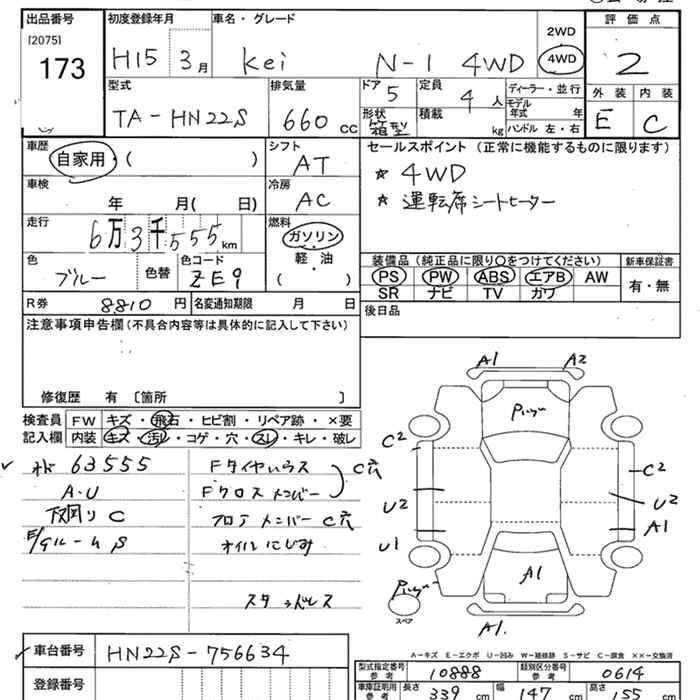 出品番号 初度登録年月 車名・グレード 評価点
[2075]
173 H15 3月 Kei N-1 4WD 2WD 4WD 2
型式 排気量 ドア 定員 ディーラー・並行 外装 内装
TA-HN22S 660cc 5 4人 モデル年式 年 E C
形状 積載 箱型 kg ハンドル 左・右
車歴 シフト セールスポイント (正常に機能するものに限ります)
自家用・( ) AT ☆ 4WD
車検 冷房 ☆ 運転席シートヒーター
年 月( 日) AC
走行 燃料
6万3千555km ガソリン・軽油・( )
色 色替 色コード 装備品(純正品に限り〇をつけてください) 新車保証書
ブルー ZE9 PS PW ABS エアB AW 有・無
SR ナビ TV カワ
R券 8810円 名変通知期限 月 日 後日品
注意事項申告欄(不具合内容等は具体的に記入して下さい)
修復歴 有 〔箇所 〕
検査員 FW キズ・飛石・ヒビ割・リペア跡・×要
記入欄 内装 キズ・汚レ・コゲ・穴・スレ・キレ・破レ
63555 Fタイヤハウス C穴
A・U Fクロスメンバー
下回り C フロアメンバー C穴
オイルにじみ
スタッドレス
A1 A2
C2 C2
U2 U2
A1
U1
A1
スペア
A1.
A-キズ E-エクボ U-凹み W-補修跡 S-サビ C-腐食 ××-交換済
車台番号 HN22S-756634 型式指定番号 参考 10888 類別区分番号 参考 0614
登録番号 車庫証明用 参考 長さ 339cm 幅 147cm 高さ 155cm